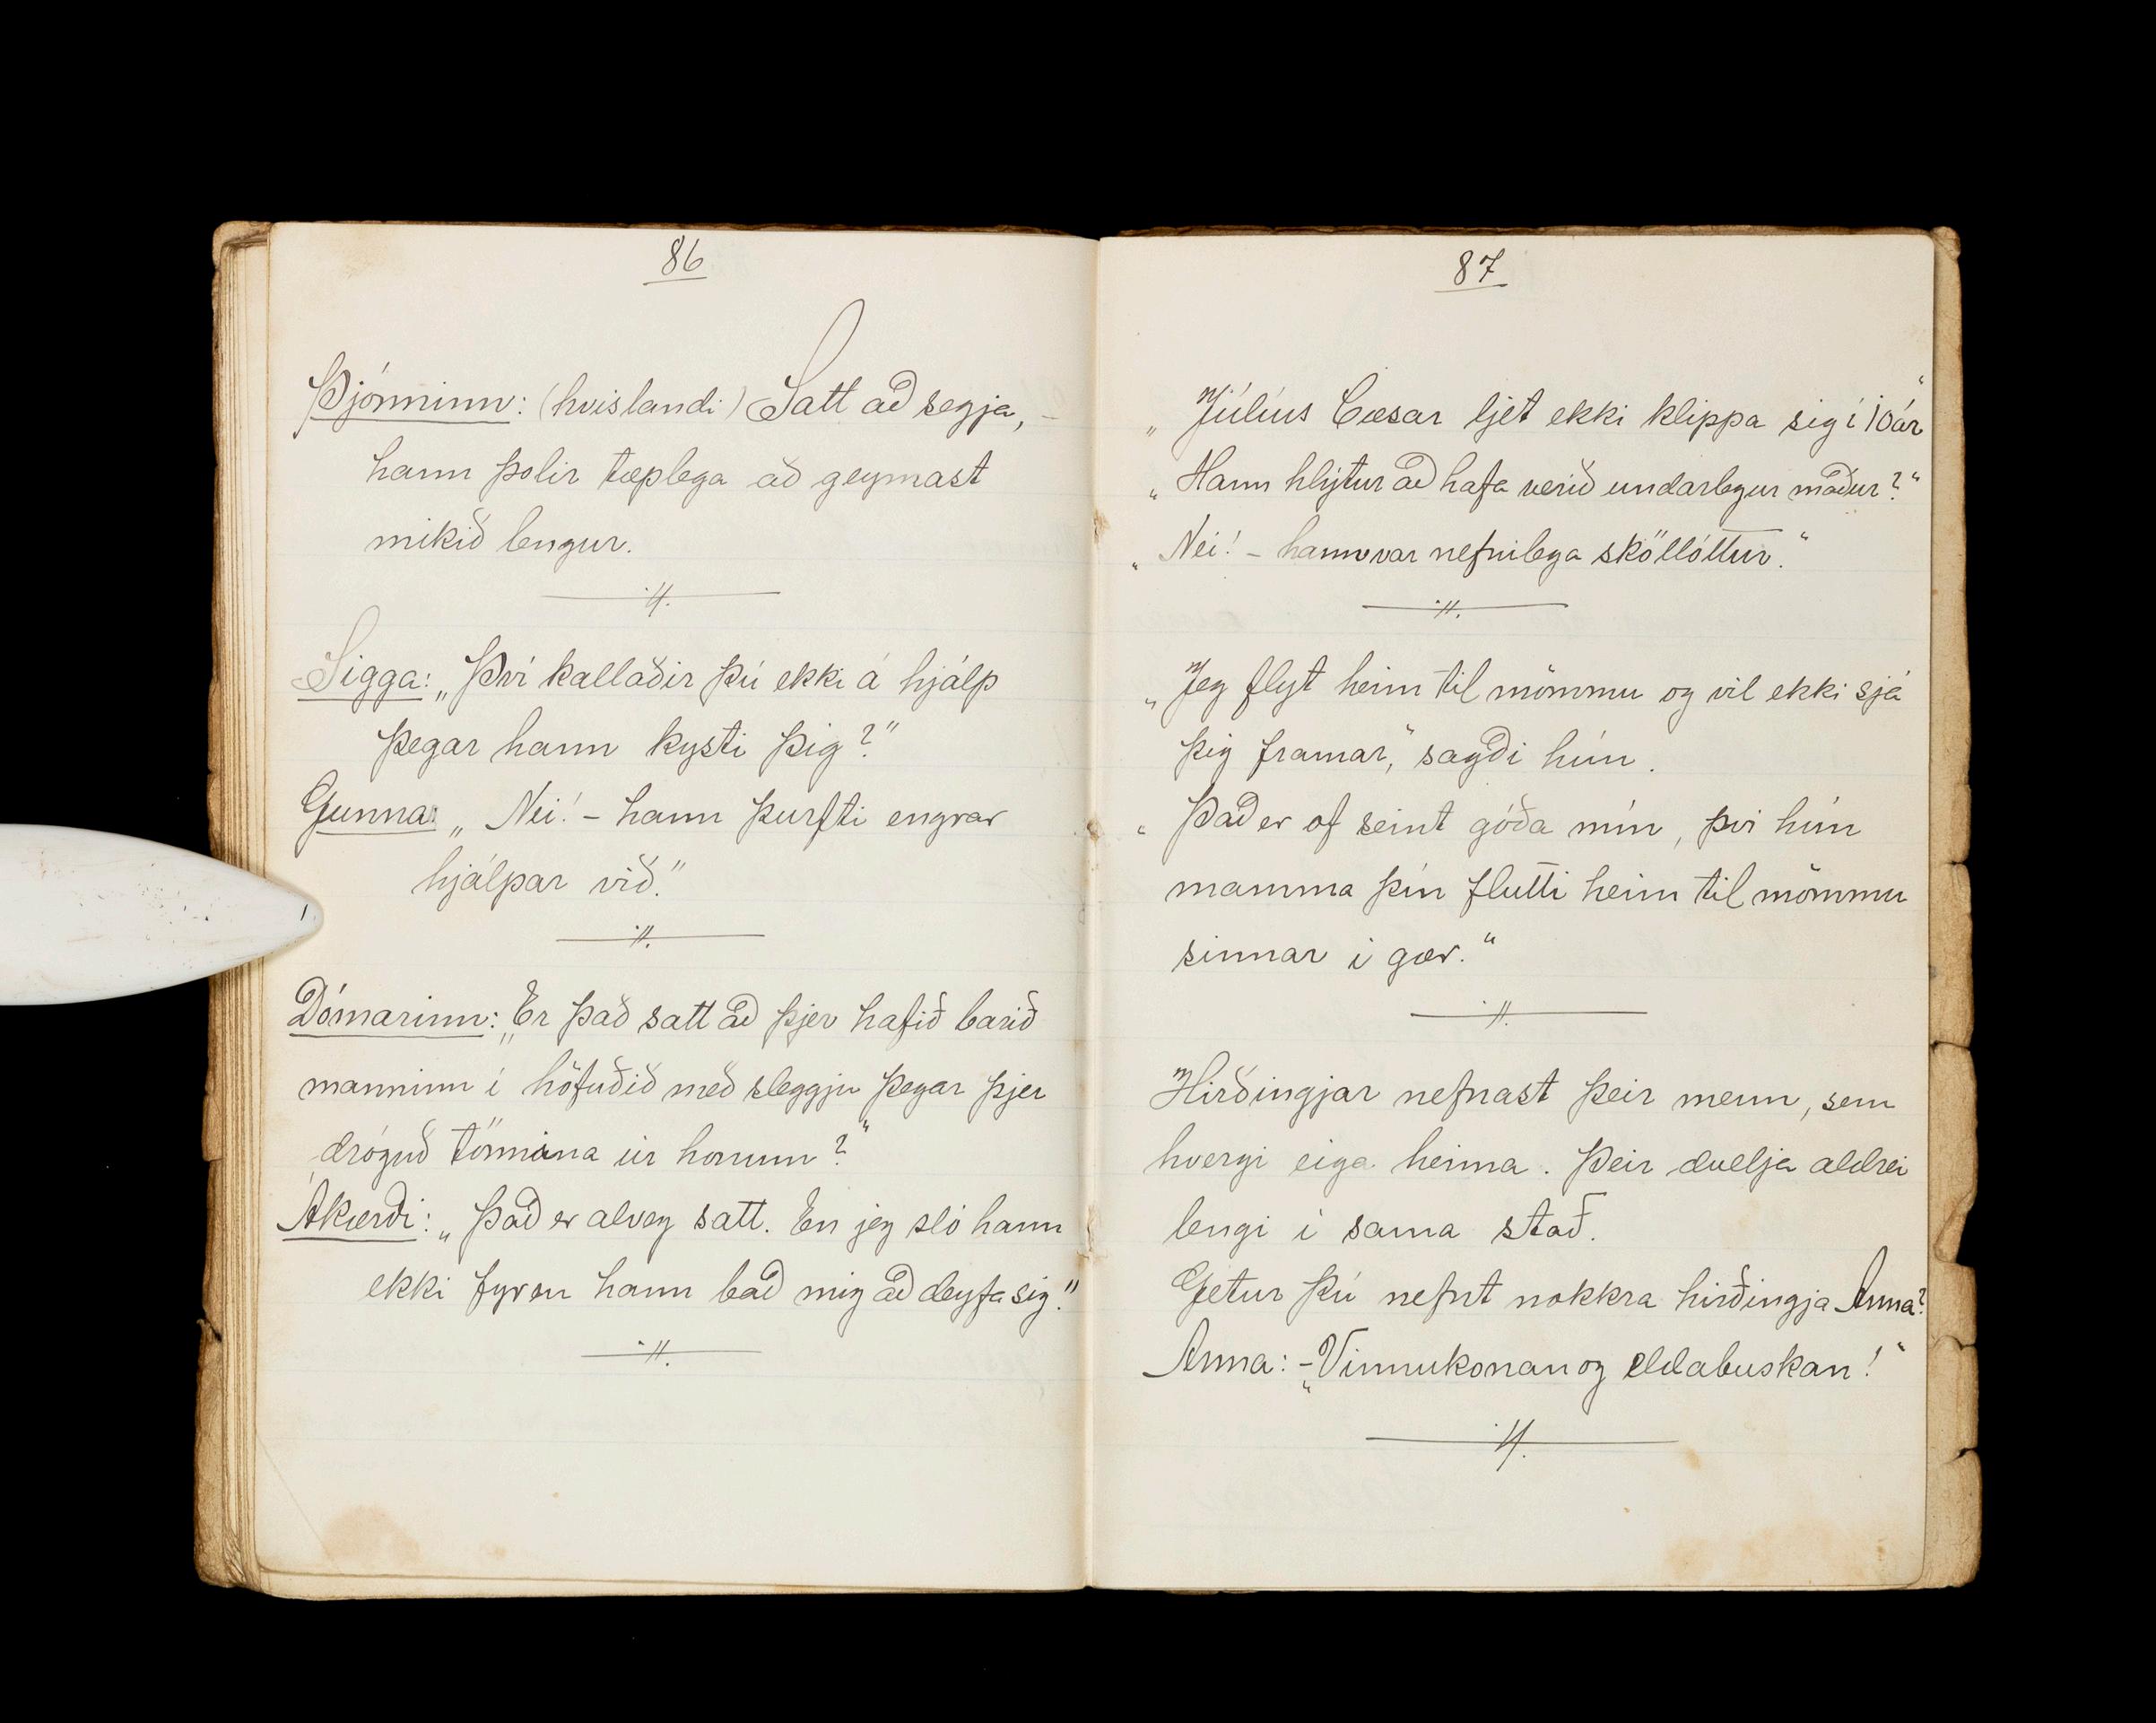 86
Þjónninn: (hvislandi) Satt að segja, -
hann þolir tæplega að geymast
mikið lengur.
Sigga: „Því kallaðir þú ekki á hjálp
þegar hann kysti þig?"
Gunna: „Nei! - hann þurfti engrar
hjálpar við."
Dómarinn: „Er það satt að þjer hafið barið
manninn í höfuðið með sleggju þegar þjer
dróguð tönnina úr honum?"
Ákærði: „Það er alveg satt. En jeg sló hann
ekki fyr en hann bað mig að deyfa sig."
87
„Júlíus Cæsar ljet ekki klippa sig í 10 ár"
„Hann hlýtur að hafa verið undarlegur maður?"
„Nei! - hann var nefnilega sköllóttur."
„Jeg flyt heim til mömmu og vil ekki sjá
þig framar," sagði hún.
„Það er of seint góða mín, því hún
mamma þín flutti heim til mömmu
sinnar í gær."
Hirðingjar nefnast þeir menn, sem
hvergi eiga heima. Þeir dvelja aldrei
lengi í sama stað.
Getur þú nefnt nokkra hirðingja Anna?
Anna: - „Vinnukonan og eldabuskan!"